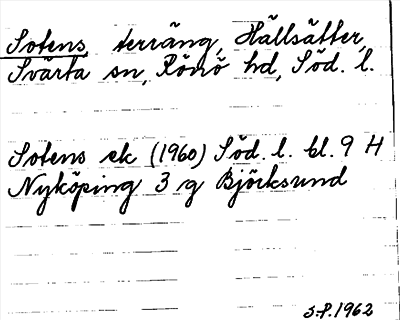 Sotens, terräng, Hällsätter,
Svärta sn, Rönö hd, Söd. l.
Sotens ek (1960) Söd. l. bl. 9 H
Nyköping 3 g Björksund
S.P. 1962